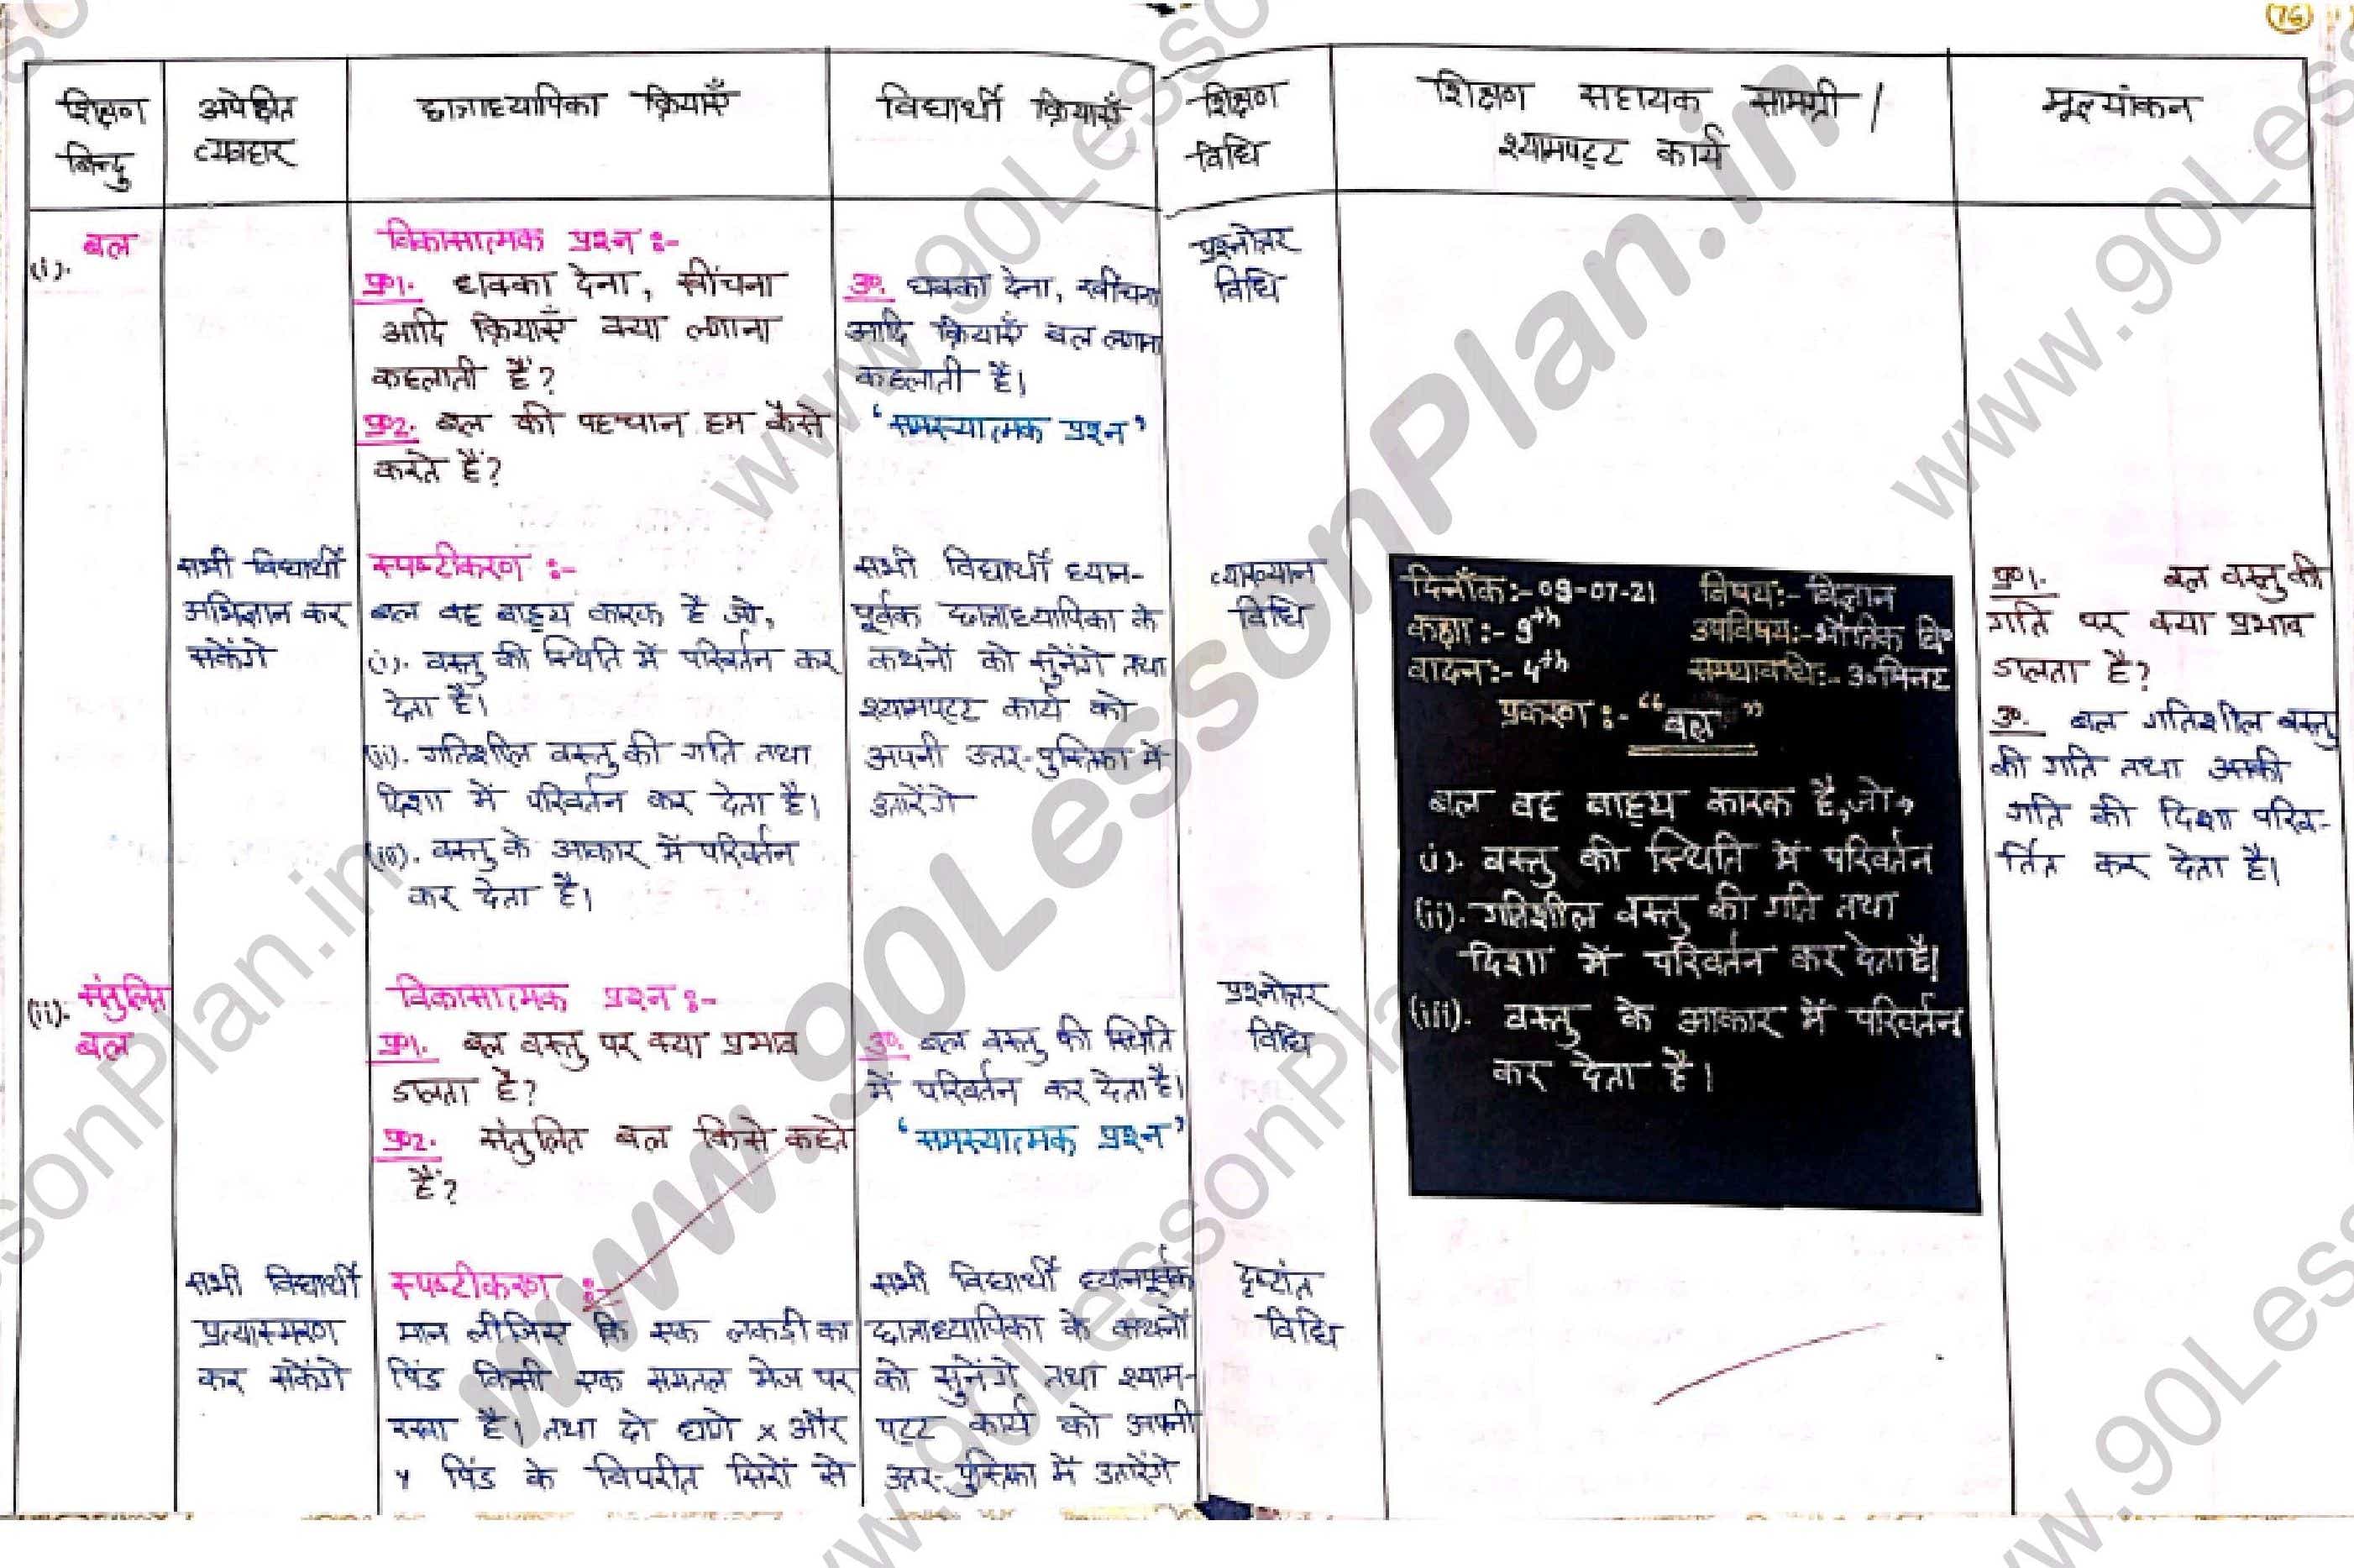 76
शिक्षण
बिन्दु
अपेक्षित
व्यवहार
छात्राध्यापिका क्रियाएँ
विद्यार्थी क्रियाएँ
शिक्षण
विधि
शिक्षण सहायक सामग्री /
श्यामपट्ट कार्य
मूल्यांकन
(i). बल
विकासात्मक प्रश्न :-
प्र01. धक्का देना, खींचना
आदि क्रियाएँ क्या लगाना
कहलाती हैं?
प्र02. बल की पहचान हम कैसे
करते हैं?
उ0. धक्का देना, खींचना
आदि क्रियाएँ बल लगाना
कहलाती है।
'समस्यात्मक प्रश्न'
प्रश्नोत्तर
विधि
सभी विद्यार्थी
अभिज्ञान कर
सकेंगे
स्पष्टीकरण :-
बल वह बाह्य कारक है जो,
(i). वस्तु की स्थिति में परिवर्तन कर
देता है।
(ii). गतिशील वस्तु की गति तथा
दिशा में परिवर्तन कर देता है।
(iii). वस्तु के आकार में परिवर्तन
कर देता है।
सभी विद्यार्थी ध्यान-
पूर्वक छात्राध्यापिका के
कथनों को सुनेंगे तथा
श्यामपट्ट कार्य को
अपनी उत्तर-पुस्तिका में
उतारेंगे
व्याख्यान
विधि
दिनाँक:- 09-07-21 विषय:- विज्ञान
कक्षा :- 9th उपविषय:- भौतिक वि०
वादन:- 4th समयावधि:- 30 मिनट
प्रकरण :- "बल"
बल वह बाह्य कारक है, जो,
(i). वस्तु की स्थिति में परिवर्तन
(ii). गतिशील वस्तु की गति तथा
दिशा में परिवर्तन कर देता है।
(iii). वस्तु के आकार में परिवर्तन
कर देता है।
प्र01. बल वस्तु की
गति पर क्या प्रभाव
डालता है?
उ0. बल गतिशील वस्तु
की गति तथा उसकी
गति की दिशा परिव-
र्तित कर देता है।
(ii). संतुलित
बल
विकासात्मक प्रश्न :-
प्र01. बल वस्तु पर क्या प्रभाव
डालता है?
प्र02. संतुलित बल किसे कहते
हैं?
उ0. बल वस्तु की स्थिति
में परिवर्तन कर देता है।
'समस्यात्मक प्रश्न'
प्रश्नोत्तर
विधि
सभी विद्यार्थी
प्रत्यास्मरण
कर सकेंगे
स्पष्टीकरण :-
मान लीजिए कि एक लकड़ी का
पिंड किसी एक समतल मेज पर
रखा है। तथा दो धागे x और
y पिंड के विपरीत सिरों से
सभी विद्यार्थी ध्यानपूर्वक
छात्राध्यापिका के कथनों
को सुनेंगे तथा श्याम-
पट्ट कार्य को अपनी
उत्तर-पुस्तिका में उतारेंगे
दृष्टांत
विधि
www.90LessonPlan.in